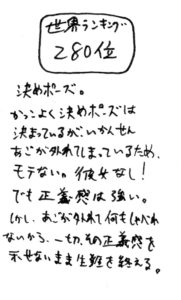 世界ランキング
280位
決めポーズ。
かっこよく決めポーズは
決まっているが、いかんせん
あごが外れてしまっているため、
モテない。彼女なし!
でも正義感は強い。
しかし、あごが外れて何もしゃべれ
ないから、一切、その正義感を
示せないまま生涯を終える。